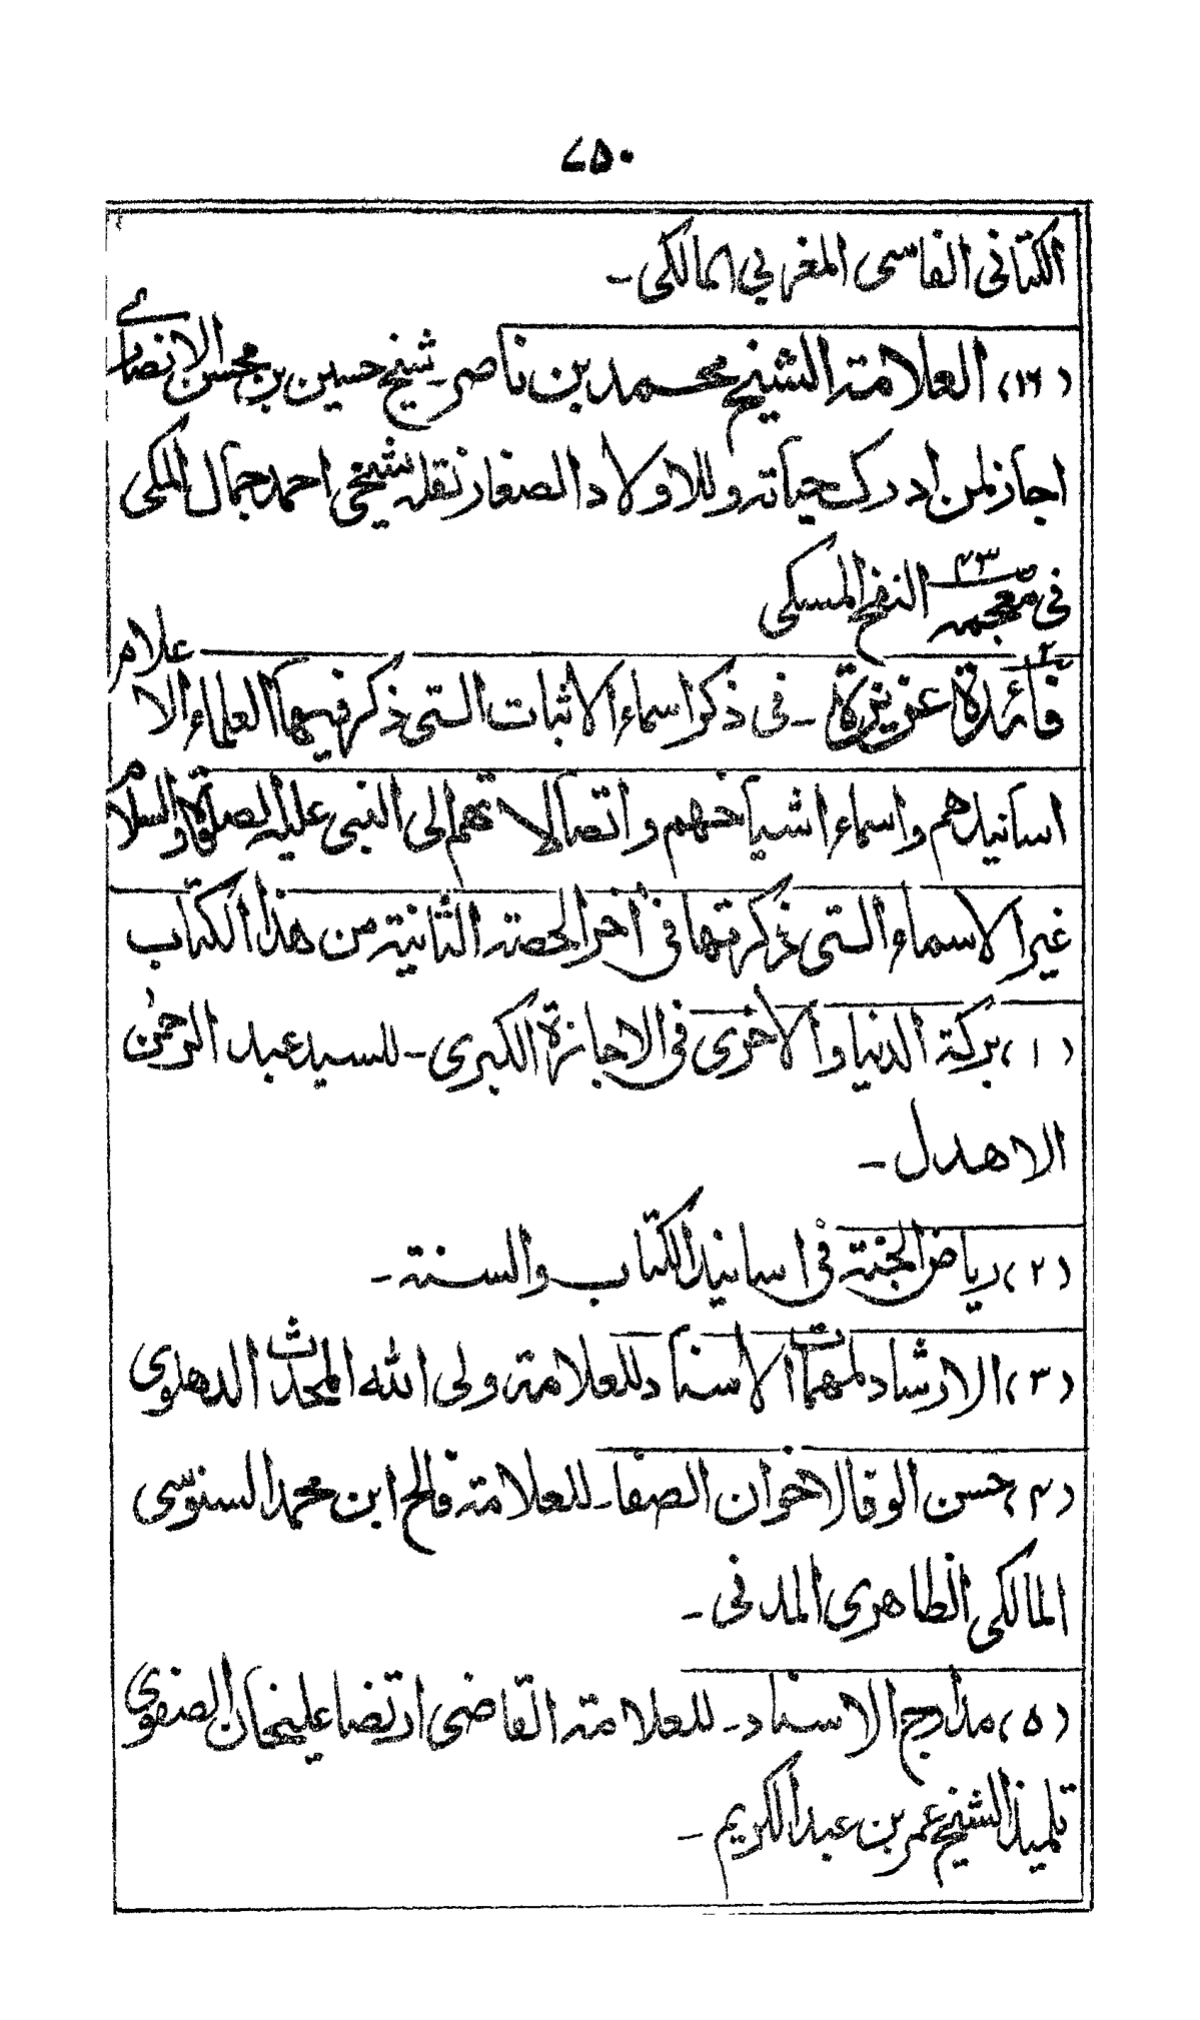 ٧٥٠
الكتاني الفاسي المغربي المالكي ـ
(١٦) العلامة الشيخ محمد بن ناصر ـ شيخ حسين بن محسن الانصاري
اجاز لمن ادرك حياته وللاولاد الصغار نقله شيخي احمد جمال المكي
في معجمه النفح المسكي
فائدة عزيزة ـ في ذكر اسماء الاثبات التي ذكر فيها العلماء الاعلام
اسانيدهم واسماء اشياخهم واتصالاتهم الى النبي عليه الصلوة والسلام
غير الاسماء التي ذكرتها في آخر الحصة الثانية من هذا الكتاب
(١) بركة الدنيا والاخرى في الاجازة الكبرى ـ للسيد عبد الرحمن
الاهدل ـ
(٢) رياض الجنة في اسانيد الكتاب والسنة ـ
(٣) الارشاد لمهمات الاسناد للعلامة ولى الله المحدث الدهلوي
(٤) حسن الوفا لاخوان الصفا ـ للعلامة فالح ابن محمد السنوسي
المالكي الظاهري المدني ـ
(٥) مدارج الاسناد ـ للعلامة القاضي ارتضا عليخان الصفوي
تلميذ الشيخ عمر بن عبد الكريم ـ